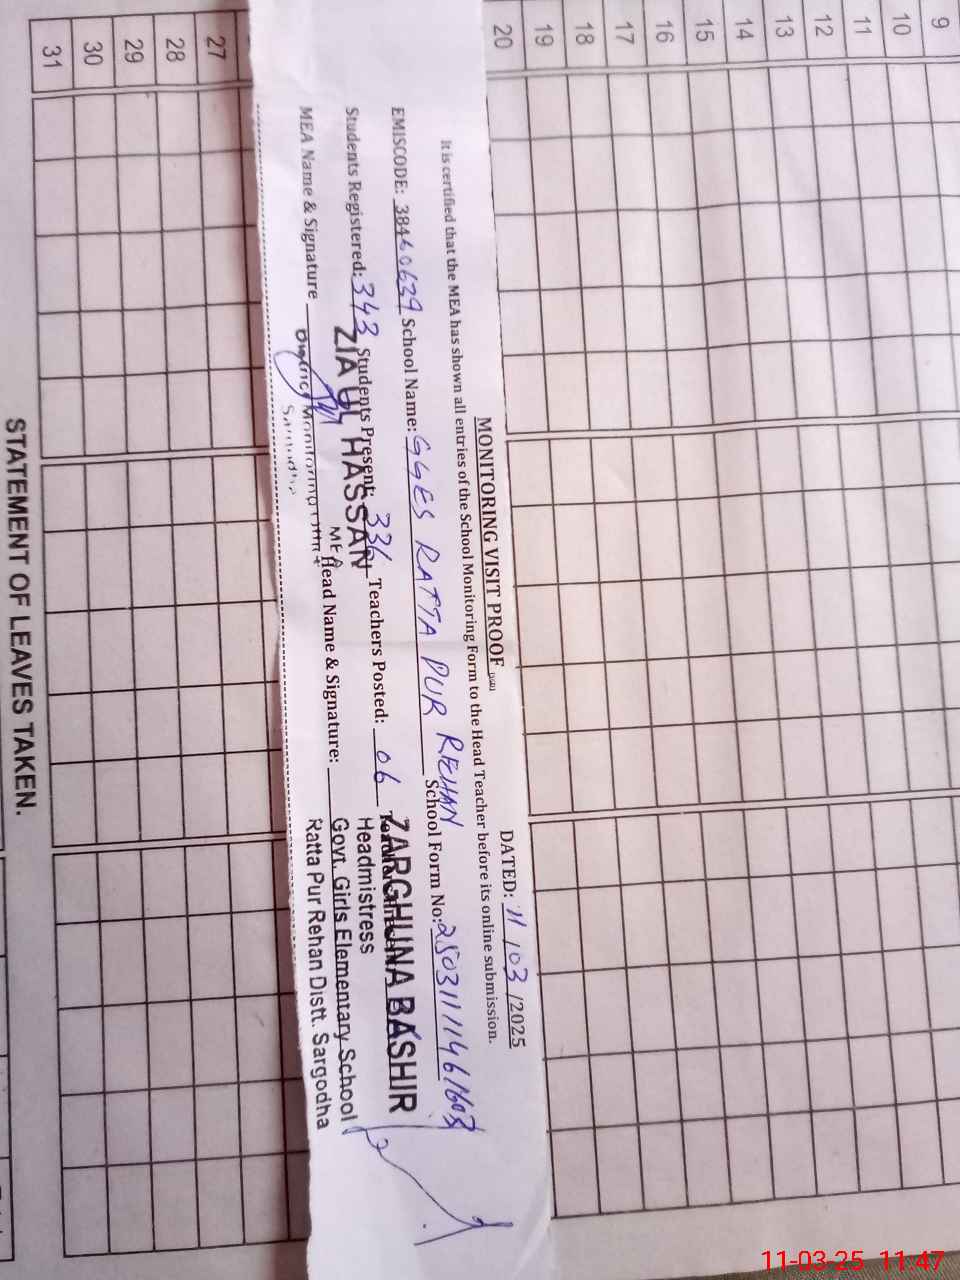 MONITORING VISIT PROOF
DATED: 11/03/2025
It is certified that the MEA has shown all entries of the School Monitoring Form to the Head Teacher before its online submission.
EMISCODE: 38460629 School Name: GGES RATTA PUR REHAN School Form No:
Students Registered: 343 Students Present: 336 Teachers Posted: 06
MEA Name & Signature
Head Name & Signature:
ZIA UL HASSAN
MEA
ZARGHUNA BASHIR
Headmistress
Govt. Girls Elementary School
Ratta Pur Rehan Distt. Sargodha
9
10
11
12
13
14
15
16
17
18
19
20
27
28
29
30
31
STATEMENT OF LEAVES TAKEN.
11-03-25 11:47